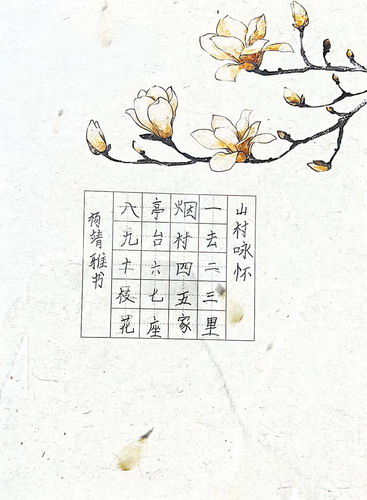 山村咏怀
一去二三里
烟村四五家
亭台六七座
八九十枝花
杨靖雅书